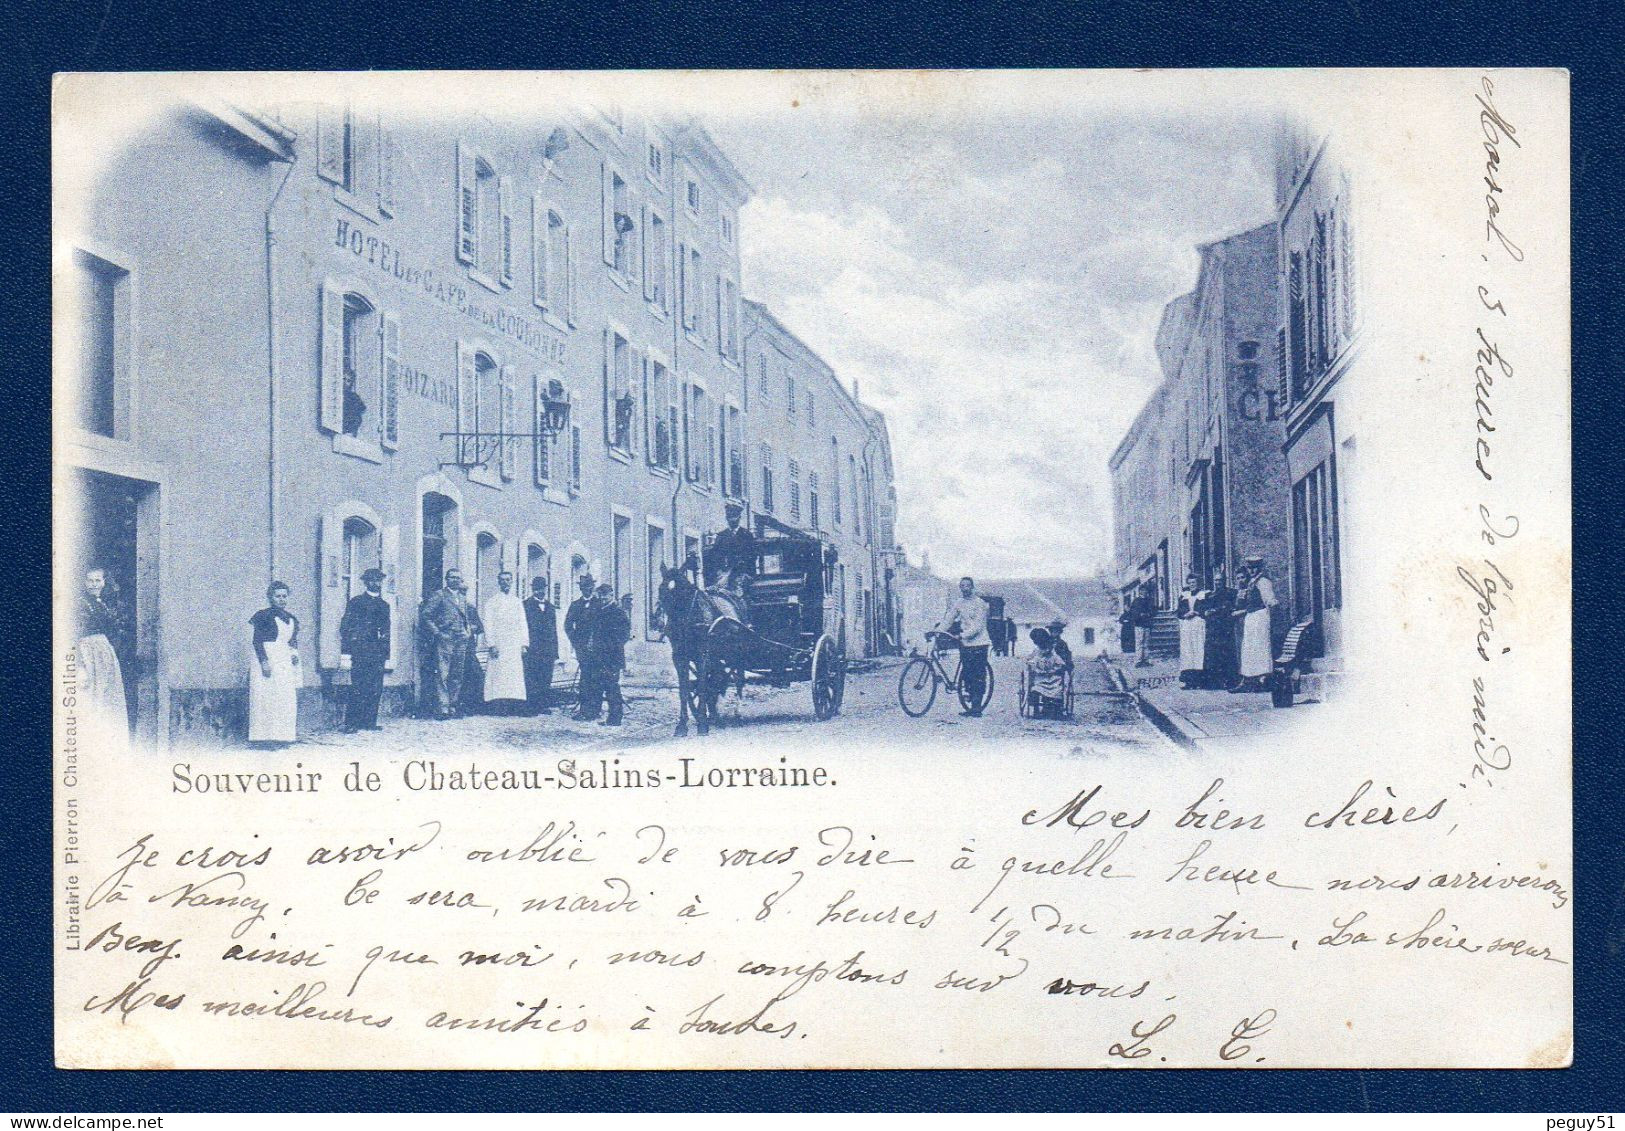 HOTEL ET CAFE DE LA COURONNE
VOIZARD
Souvenir de Chateau-Salins-Lorraine.
Librairie Pierron Chateau-Salins.
5 heures de l'après midi
Mes bien chères,
Je crois avoir oublié de vous dire à quelle heure nous arriverons
à Nancy. Ce sera, mardi à 8 heures 1/2 du matin. La chère soeur
Benj. ainsi que moi, nous comptons sur vous.
Mes meilleures amitiés à toutes.
L. C.
peguy51